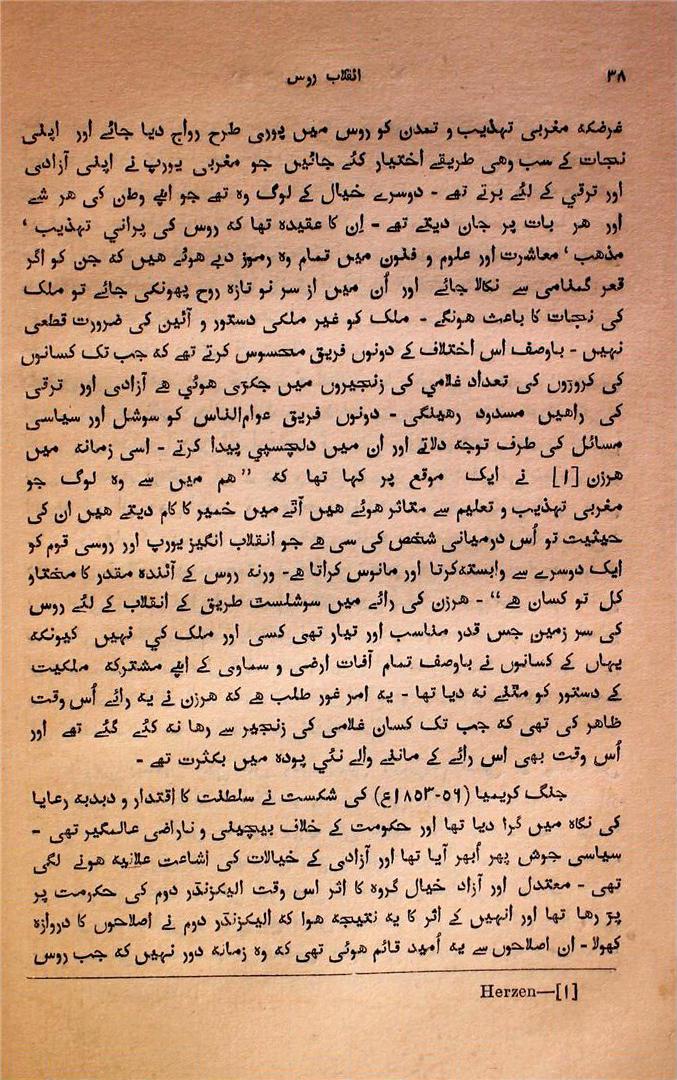 ۳۸ انقلاب روس
غرضکہ مغربی تہذیب و تمدن کو روس میں پوری طرح رواج دیا جائے اور اپنی
نجات کے سب وہی طریقے اختیار کئے جائیں جو مغربی یورپ نے اپنی آزادی
اور ترقی کے لئے برتے تھے - دوسرے خیال کے لوگ وہ تھے جو اپنے وطن کی ہر شے
اور ہر بات پر جان دیتے تھے - اِن کا عقیدہ تھا کہ روس کی پرانی تہذیب ‘
مذہب ‘ معاشرت اور علوم و فنون میں تمام وہ رموز دبے ہوئے ہیں کہ جن کو اگر
قعر گمنامی سے نکالا جائے اور اُن میں از سر نو تازہ روح پھونکی جائے تو ملک
کی نجات کا باعث ہونگے - ملک کو غیر ملکی دستور و آئین کی ضرورت قطعی
نہیں - باوصف اس اختلاف کے دونوں فریق محسوس کرتے تھے کہ جب تک کسانوں
کی کروڑوں کی تعداد غلامی کی زنجیروں میں جکڑی ہوئی ہے آزادی اور ترقی
کی راہیں مسدود رہینگی - دونوں فریق عوام‌الناس کو سوشل اور سیاسی
مسائل کی طرف توجہ دلاتے اور ان میں دلچسپی پیدا کرتے - اسی زمانہ میں
ہرزن [۱] نے ایک موقع پر کہا تھا کہ ”ہم میں سے وہ لوگ جو
مغربی تہذیب و تعلیم سے متاثر ہوئے ہیں آٹے میں خمیر کا کام دیتے ہیں ان کی
حیثیت تو اُس درمیانی شخص کی سی ہے جو انقلاب انگیز یورپ اور روسی قوم کو
ایک دوسرے سے وابستہ کرتا اور مانوس کراتا ہے - ورنہ روس کے آئندہ مقدر کا مختاو
کل تو کسان ہے“ - ہرزن کی رائے میں سوشلسٹ طریق کے انقلاب کے لئے روس
کی سر زمین جس قدر مناسب اور تیار تھی کسی اور ملک کی نہیں کیونکہ
یہاں کے کسانوں نے باوصف تمام آفات ارضی و سماوی کے اپنے مشترکہ ملکیت
کے دستور کو مٹنے نہ دیا تھا - یہ امر غور طلب ہے کہ ہرزن نے یہ رائے اُس وقت
ظاہر کی تھی کہ جب تک کسان غلامی کی زنجیر سے رہا نہ کئے گئے تھے اور
اُس وقت بھی اس رائے کے ماننے والے نئی پودہ میں بکثرت تھے -
جنگ کریمیا (۵۶-۱۸۵۳ع) کی شکست نے سلطنت کا اقتدار و دبدبہ رعایا
کی نگاہ میں گرا دیا تھا اور حکومت کے خلاف بیچینی و ناراضی عالمگیر تھی -
سیاسی جوش پھر اُبھر آیا تھا اور آزادی کے خیالات کی اشاعت علانیہ ہونے لگی
تھی - معتدل اور آزاد خیال گروہ کا اثر اس وقت الیکزنڈر دوم کی حکومت پر
پڑ رہا تھا اور انہیں کے اثر کا یہ نتیجہ ہوا کہ الیکزنڈر دوم نے اصلاحوں کا دروازہ
کھولا - ان اصلاحوں سے یہ اُمید قائم ہوئی تھی کہ وہ زمانہ دور نہیں کہ جب روس
Herzen—[۱]